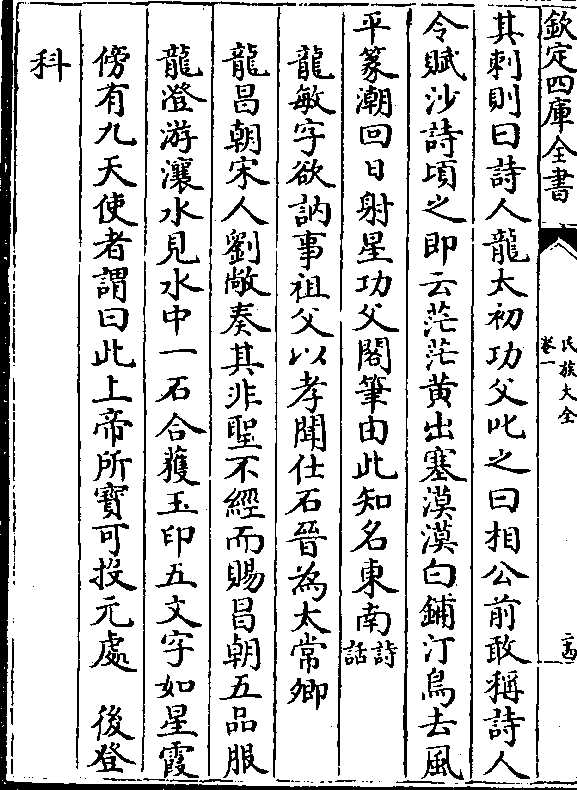 欽定四庫全書
氏族大全
卷一
二古
其刺則曰詩人龍太初功父叱之曰相公前敢稱詩人
令賦沙詩頃之即云茫茫黄出塞漠漠白鋪汀鳥去風
平篆潮回日射星功父閣筆由此知名東南詩話
龍敏字欲訥事祖父以孝聞仕石晉為太常卿
龍昌朝宋人劉敞奏其非聖不經而賜昌朝五品服
龍澄游瀼水見水中一石合獲玉印五文字如星霞
傍有九天使者謂曰此上帝所寶可投元處　後登
科